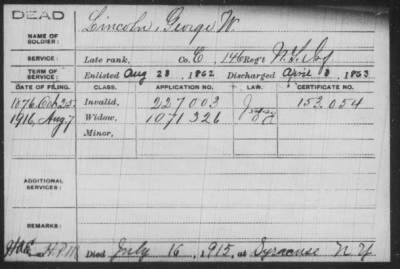 DEAD
NAME OF SOLDIER: Lincoln, George W.
SERVICE: Late rank, Co. C, 146 Reg't N.Y. Inf
TERM OF SERVICE: Enlisted Aug 28, 1862 Discharged April 3, 1863
DATE OF FILING. CLASS. APPLICATION NO. LAW. CERTIFICATE NO.
1876, Oct 25 Invalid, 227 003 153 054
1916, Aug 7 Widow, 1071 326
Minor,
ADDITIONAL SERVICES:
REMARKS:
Died July 16, 1915, at Syracuse N Y